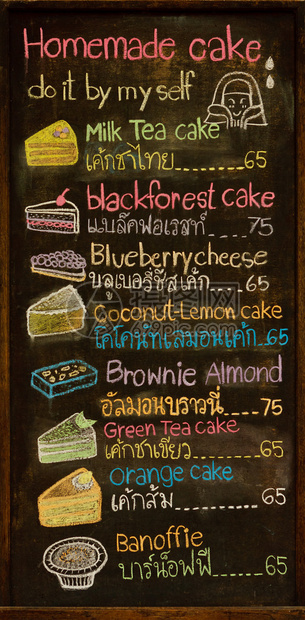 Homemade cake
do it by my self
Milk Tea cake
เค้กชาไทย........65
blackforest cake
แบล๊คฟอเรสท์.....75
Blueberry cheese
บลูเบอรี่ชีสเค้ก....65
Coconut-Lemon cake
โคโคนัทเลมอนเค้ก..65
Brownie Almond
อัลมอนบราวนี่.....75
Green Tea cake
เค้กชาเขียว........65
Orange cake
เค้กส้ม..........65
Banoffie
บาร์น็อฟฟี่......65